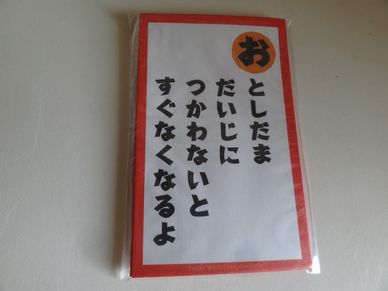 おとしだま
だいじに
つかわないと
すぐなくなるよ